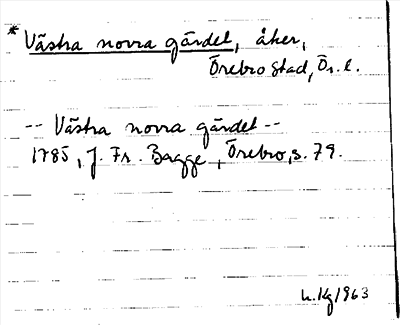 * Västra norra gärdet, åker,
Örebro stad, Ör. l.
-- Västra norra gärdet --
1785, J. Fr. Bagge, Örebro, s. 79.
L. Kg 1963